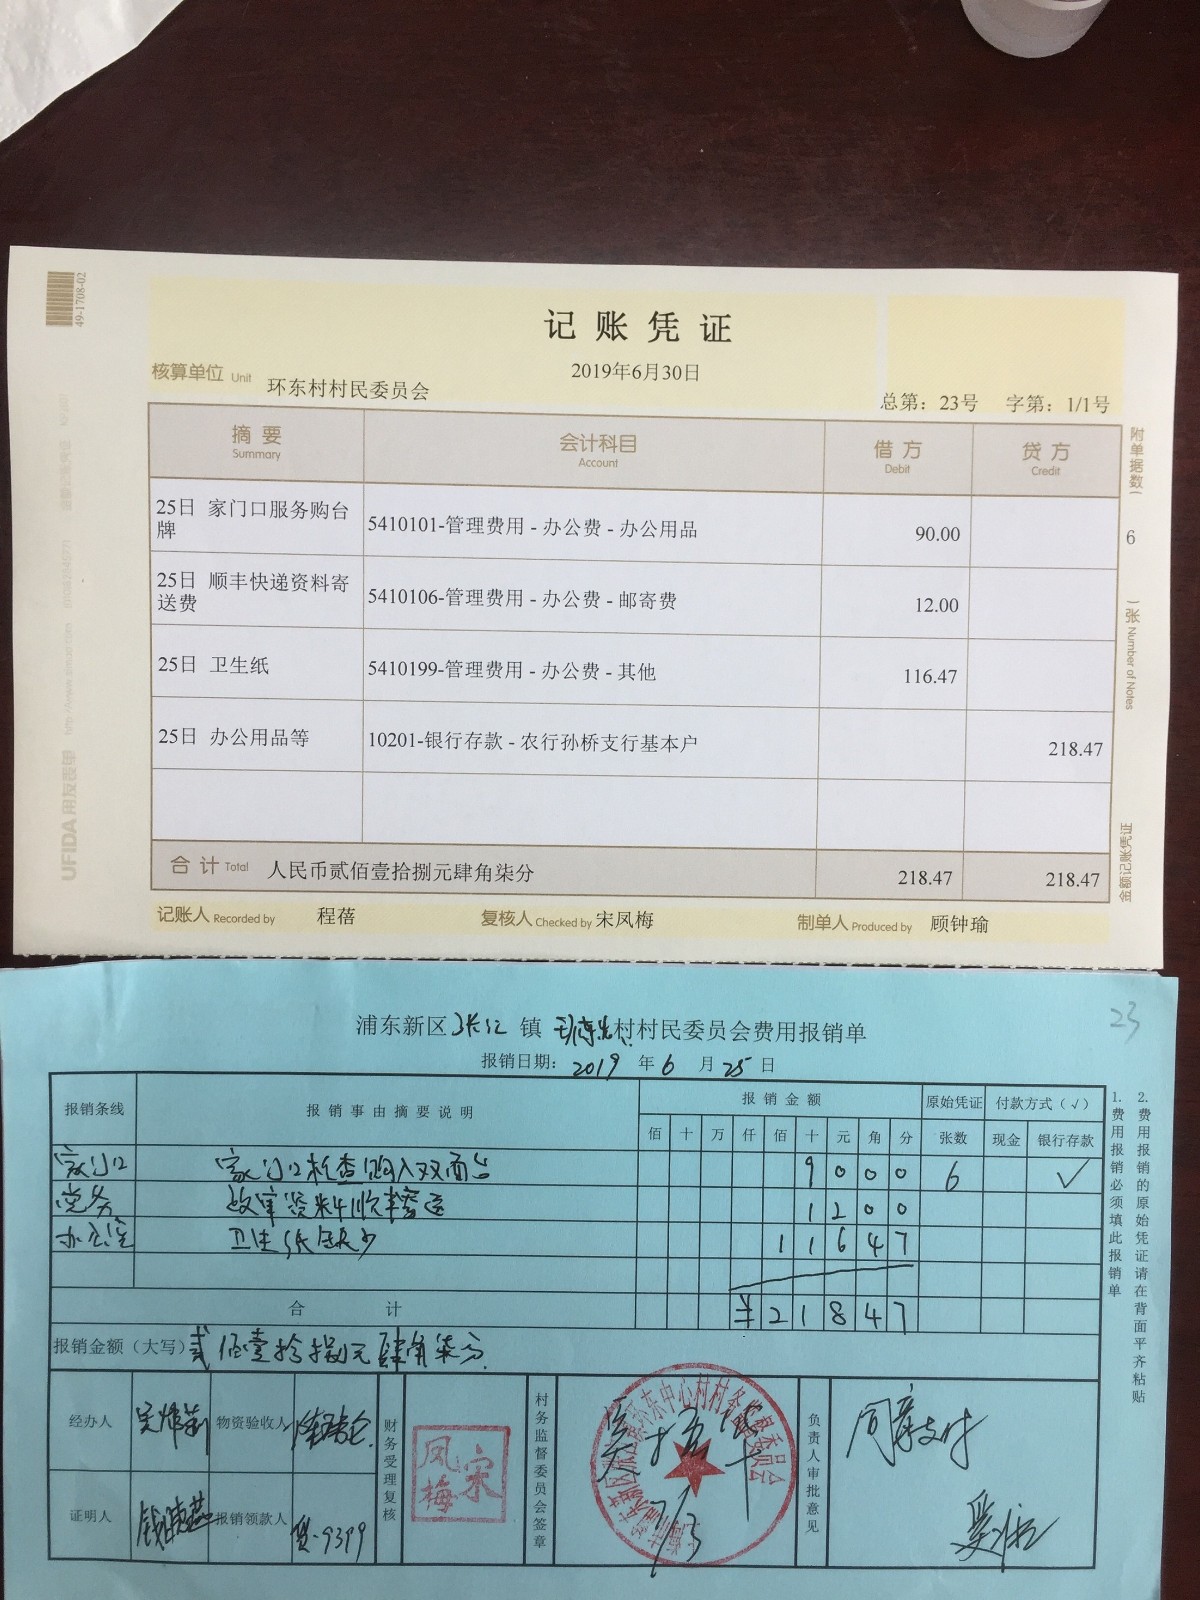 49-1708-02
记账凭证
2019年6月30日
核算单位 Unit 环东村村民委员会
总第：23号 字第：1/1号
摘要 会计科目 借方 贷方
Summary Account Debit Credit
25日 家门口服务购台牌 5410101-管理费用 - 办公费 - 办公用品 90.00
25日 顺丰快递资料寄送费 5410106-管理费用 - 办公费 - 邮寄费 12.00
25日 卫生纸 5410199-管理费用 - 办公费 - 其他 116.47
25日 办公用品等 10201-银行存款 - 农行孙桥支行基本户 218.47
合计 Total 人民币贰佰壹拾捌元肆角柒分 218.47 218.47
记账人 Recorded by 程蓓 复核人 Checked by 宋凤梅 制单人 Produced by 顾钟瑜
附单据数（ 6 ）张 Number of Notes
金额记账凭证
UFIDA 用友表单
23
浦东新区张江镇环东村村民委员会费用报销单
报销日期：2019年6月25日
报销条线 报销事由摘要说明 报销金额 原始凭证 付款方式（√）
佰 十 万 仟 佰 十 元 角 分 张数 现金 银行存款
家门口 9 0 0 0 6 √
党务 1 2 0 0
办公室 卫生纸 1 1 6 4 7
合计 ¥ 2 1 8 4 7
报销金额（大写）贰佰壹拾捌元肆角柒分
经办人 物资验收人 财务受理复核 村务监督委员会签章 负责人审批意见 同意支付
宋凤梅
证明人 报销领款人 9399
1.费用报销必须填此报销单
2.费用报销的原始凭证请在背面平齐粘贴